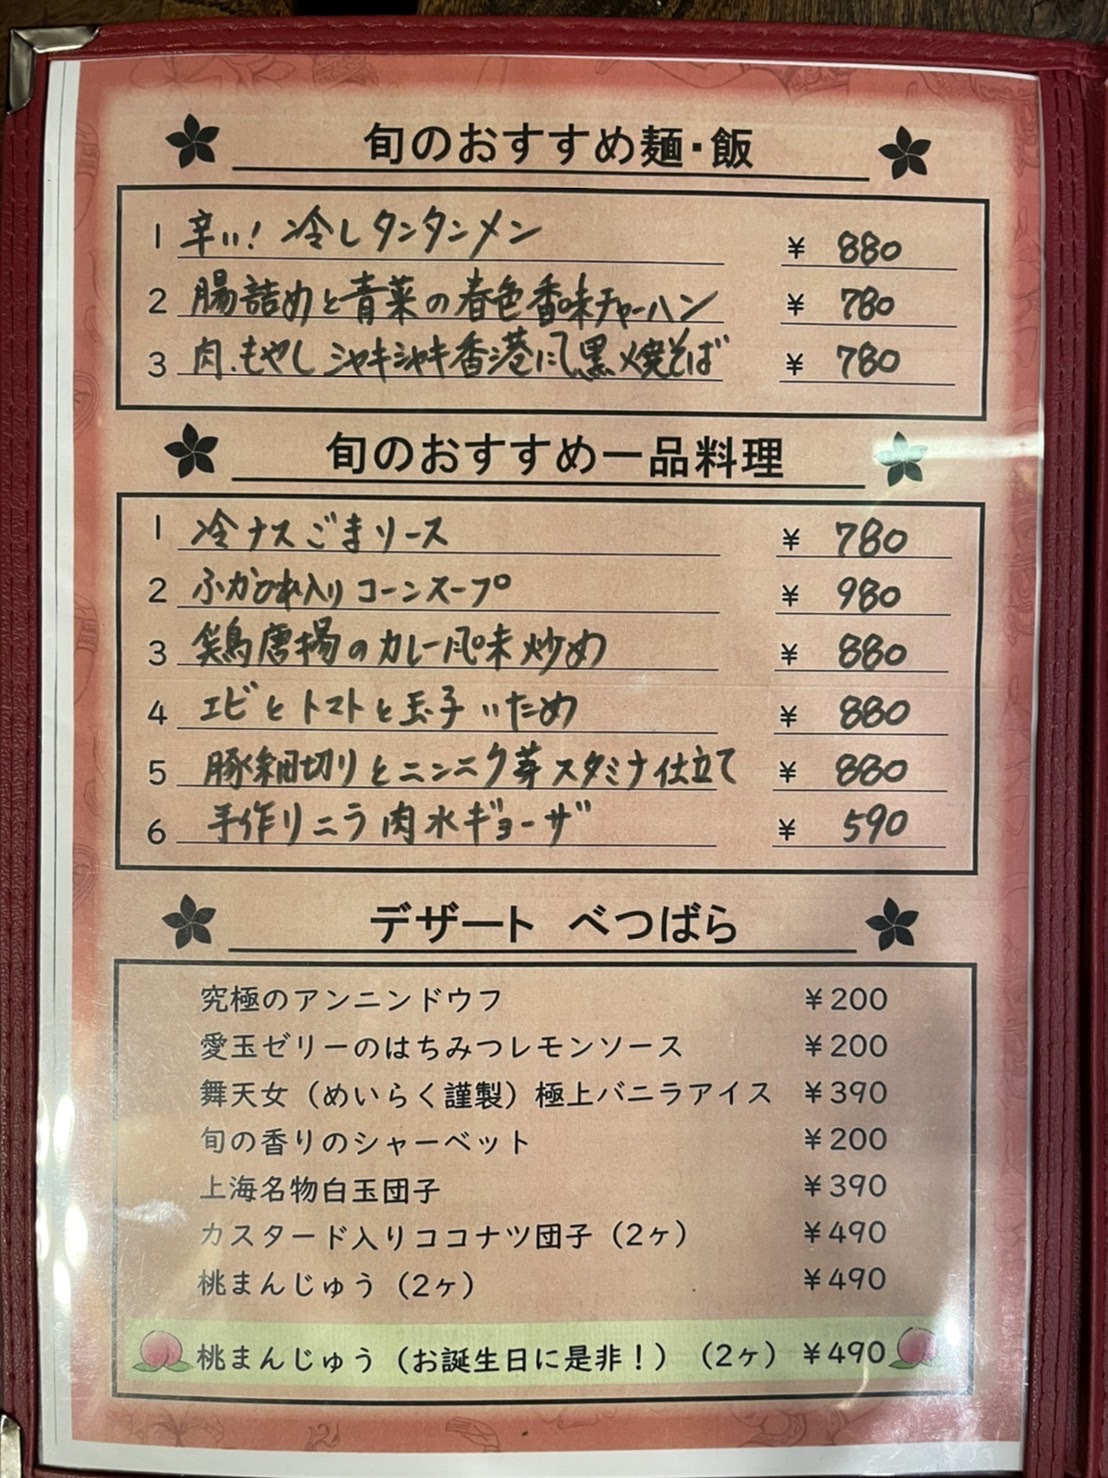 旬のおすすめ麺・飯
1 辛い！冷しタンタンメン ¥ 880
2 腸詰めと青菜の春色香味チャーハン ¥ 780
3 肉、もやしシャキシャキ香港にて黒焼そば ¥ 780
旬のおすすめ一品料理
1 冷ナスごまソース ¥ 780
2 ふかひれ入りコーンスープ ¥ 980
3 鶏唐揚のカレー風味炒め ¥ 880
4 エビとトマトと玉子いため ¥ 880
5 豚細切りとニンニク芽スタミナ仕立て ¥ 880
6 手作りニラ肉水ギョーザ ¥ 590
デザート べつばら
究極のアンニンドウフ ¥200
愛玉ゼリーのはちみつレモンソース ¥200
舞天女（めいらく謹製）極上バニラアイス ¥390
旬の香りのシャーベット ¥200
上海名物白玉団子 ¥390
カスタード入りココナツ団子（2ヶ） ¥490
桃まんじゅう（2ヶ） ¥490
桃まんじゅう（お誕生日に是非！）（2ヶ） ¥490